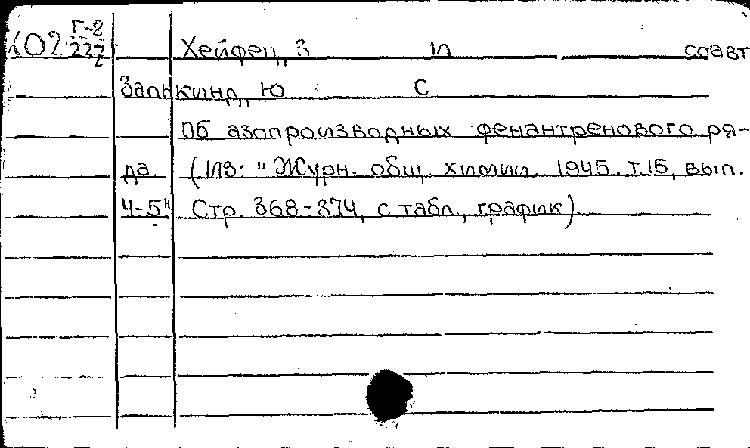 Г-2
102 227 Хейфец, З И соавт
Залькинд, Ю С
Об азопроизводных фенантренового ря-
да. (Из: "Журн. общ. химии. 1945. Т. 15, вып.
4-5". Стр. 368-374, с табл., график)